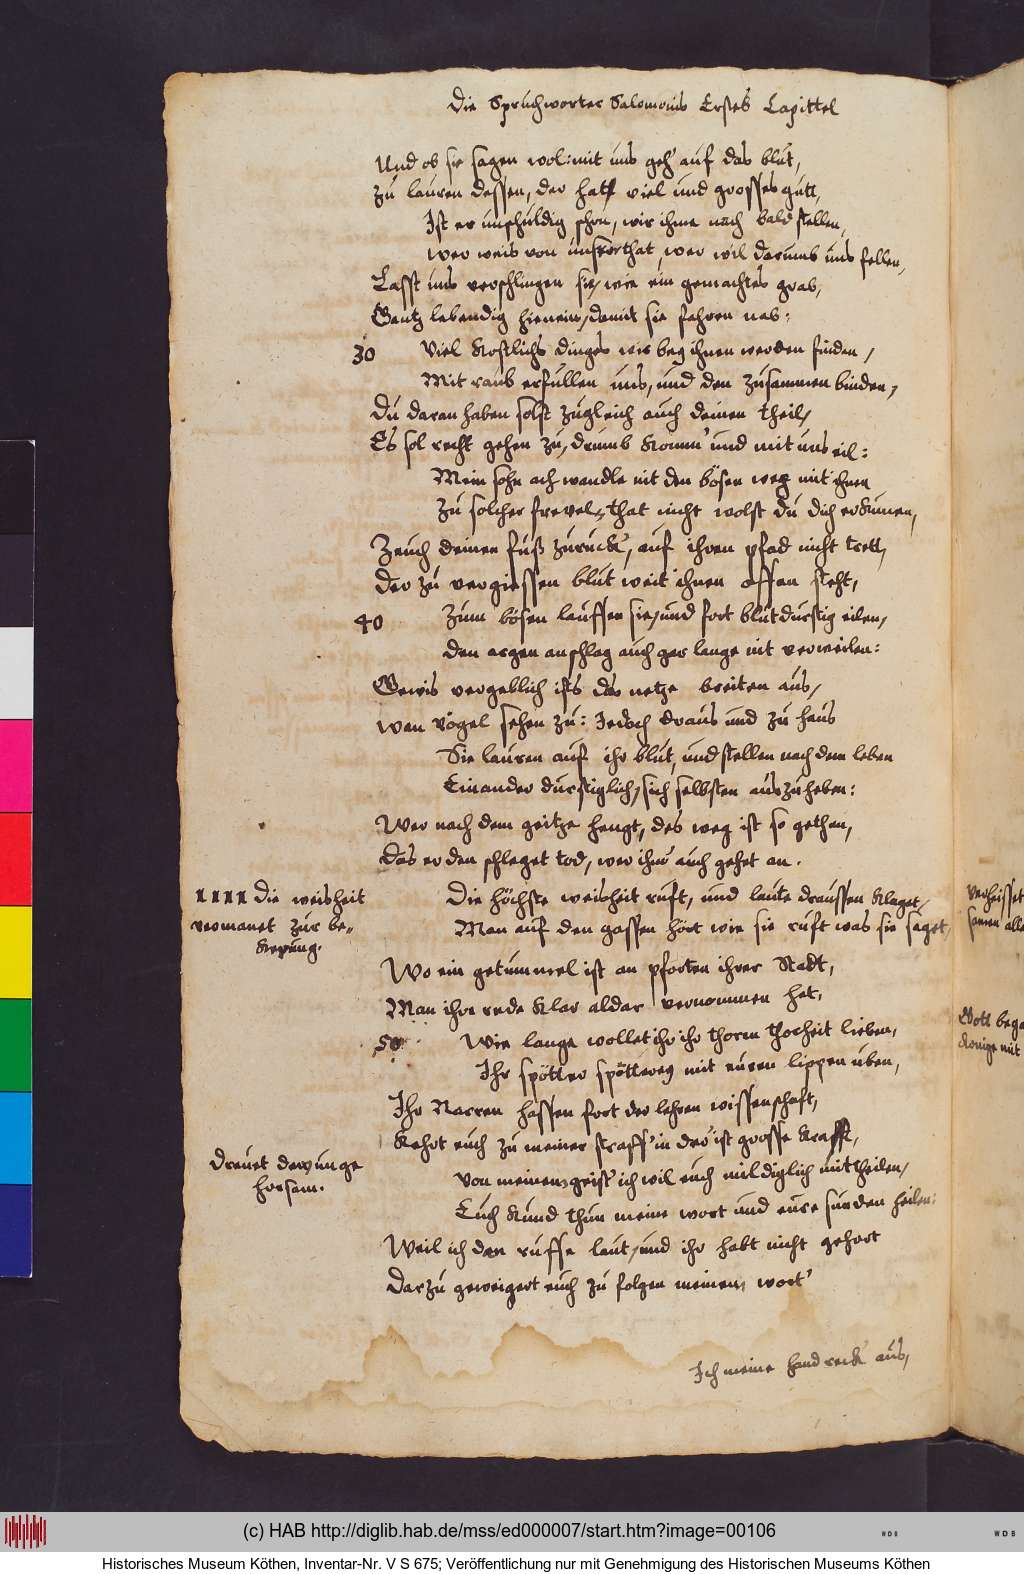 Die Spruchworter Salomonis Erstes Capittel
Und ob sie sagen wol: mit uns geh' auf das blut,
Zu lauren dessen, der hatt viel und grosses gutt,
Ist er unschuldig schon, wir ihme nach bald stellen,
Wer weis von unsrer that, wer wil darumb uns fellen,
Lasst uns verschlingen sie, wie ein gemachtes grab,
Gantz lebendig hienein, damit sie fahren nab:
30 Viel Kostlichs dinges wir beÿ ihnen werden finden,
Mit raub erfullen uns, und den zusammen binden,
Du daran haben solst zugleich auch deinen theil,
Es sol recht gehen zu, drumb Komm' und mit uns eil:
Mein sohn ach wandle nit den bösen weg mit ihnen
Zu solcher frevel, that nicht wolst du dich erkünen,
Zeuch deinen fuß zurück', auf ihren pfad nicht trett,
Der zu vergiessen blut weit ihnen offen steht,
40 Zum bösen lauffen sie, und fort blutdurstig eilen,
Den argen anschlag auch gar lange nit verweilen:
Gewis vergeblich ists das netze breiten aus,
Wen vögel sehen zu: Jedoch draus und zu haus
Sie lauren auf ihr blut, und stellen nach dem leben
Einander durstiglich, sich selbsten auszuheben:
Wer nach dem geitze hengt, des weg ist so gethan,
Das er den schleget tod, wer ihm' auch gehet an.
Die weisheit
vermanet zur be-
Kerung.
Die höchste weisheit ruft, und laute draussen Klaget,
Man auf den gassen hört wie sie ruft was sie saget,
Wo ein getummel ist an pforten ihrer Stadt,
Man ihre rede Klar aldar vernommen hat,
50 Wie lange wollet ihr ihr thoren thorheit lieben,
Ihr spötter spötterey mit euren lippen uben,
Ihr Narren hassen fort der lehren wissenschaft,
Kehrt euch zu meiner straff' in der ist grosse Krafft,
Dreuet den unge
horsam.
Von meinem geist' ich wil euch mildiglich mittheilen,
Euch Kund thun meine wort und eure sunden heilen:
Weil ich den ruffe laut, und ihr habt nicht gehort
Darzu geweigert euch zu folgen meinem wort'
Ich meine hand reck' aus,
verheisset
Gott bege
Konige mit
(c) HAB http://diglib.hab.de/mss/ed000007/start.htm?image=00106
Historisches Museum Köthen, Inventar-Nr. V S 675; Veröffentlichung nur mit Genehmigung des Historischen Museums Köthen